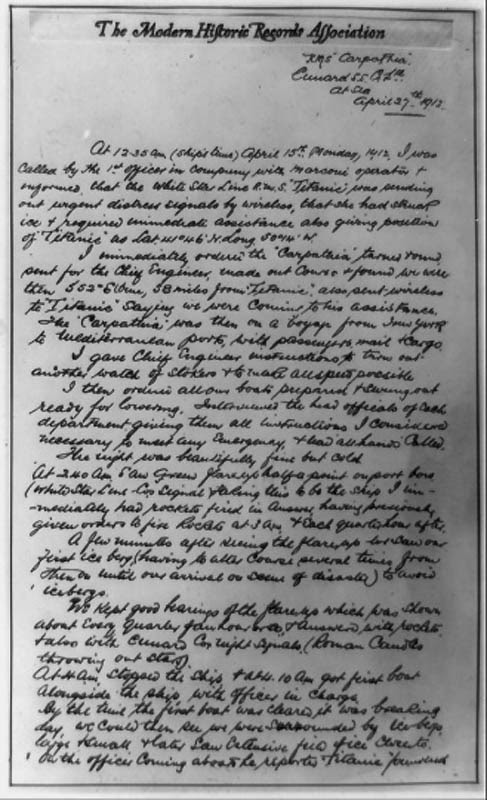 The Modern Historic Records Association
R.M.S. "Carpathia".
Cunard S.S. Co Ltd
At Sea
April 27th 1912.
At 12-35 am (Ships time) April 15th Monday, 1912, I was
Called by the 1st officer in company with Marconi operator &
informed, that the White Star Line R.M.S. "Titanic" was sending
out urgent distress signals by wireless, that she had struck
ice & required immediate assistance also giving position
of "Titanic" as Lat 41°46' N. Long. 50°14' W.
I immediately ordered the "Carpathia" turned round
sent for the Chief Engineer, made out Course & found we were
then S 52° E true, 58 miles from "Titanic", also sent wireless
to "Titanic" saying we were coming to his assistance.
The "Carpathia" was then on a voyage from New York
to Mediterranean ports, with passengers, mail & cargo.
I gave Chief Engineer instructions to turn out
another watch of Stokers & to make all speed possible
I then ordered all our boats prepared & swung out
ready for lowering. Interviewed the head officials of each
department giving them all instructions I considered
necessary to meet any Emergency, & had all hands Called.
The night was beautifully fine but cold
At 2.40 Am Saw Green flare up half a point on port bow
(White Star Line Cos Signal) taking this to be the Ship I im-
-mediately had rockets fired in answer, having previously
given orders to fire Rockets at 3 Am & Each quarter hour after.
A few minutes after seeing the flare up we Saw our
first ice berg, (having to alter course several times from
then on until our arrival on scene of disaster) to avoid
icebergs.
We Kept good bearings of the flare up which was shown
about Every quarter of an hour & answered with rockets
& also with Cunard Cos night Signals, (Roman Candles
throwing out stars).
At 4 Am, Stopped the Ship, & at 4.10 Am got first boat
alongside the ship, with officer in charge.
By the time the first boat was cleared, it was breaking
day, we could then see we were surrounded by Ice bergs,
large & small, & later Saw Extensive field of ice
On the officer Coming aboard he reported Titanic foundered